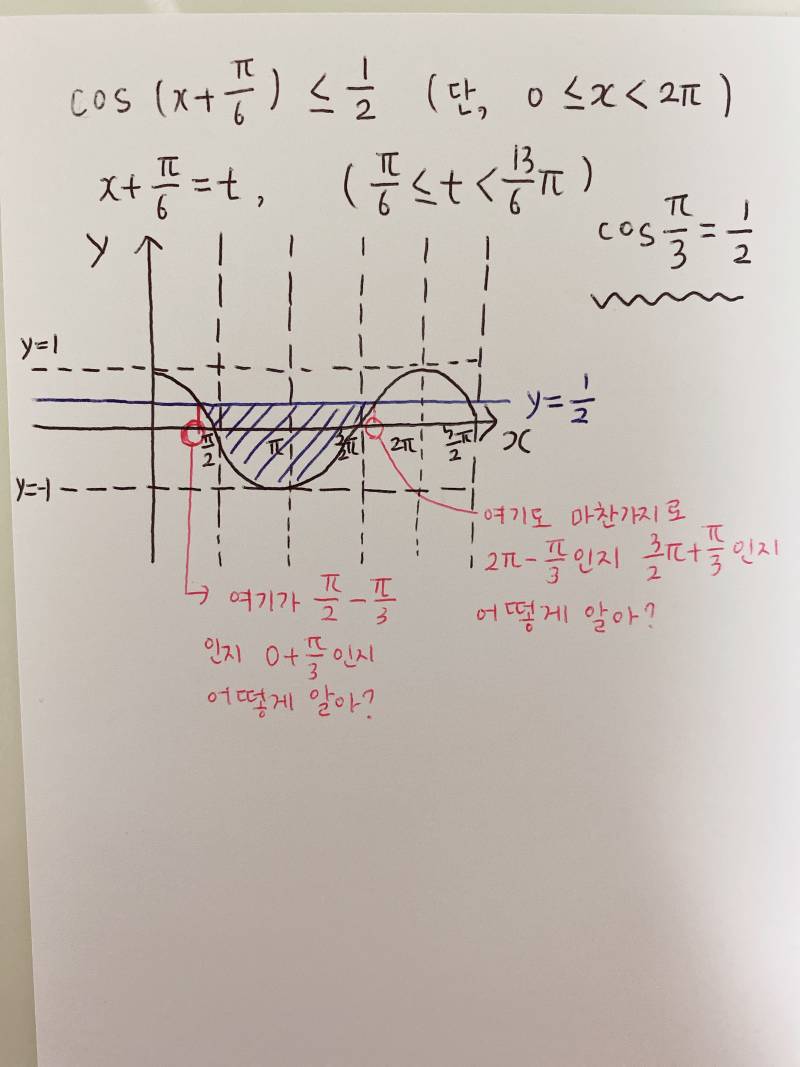 cos (x+π/6) ≤ 1/2 (단, 0 ≤ x < 2π)
x+π/6 = t, (π/6 ≤ t < 13/6 π)
cos π/3 = 1/2
y
y=1
y=1/2
π/2 π 3/2π 2π 5/2π x
y=-1
여기도 마찬가지로
2π-π/3 인지 3/2π+π/3 인지
어떻게 알아?
여기가 π/2 - π/3
인지 0+π/3 인지
어떻게 알아?